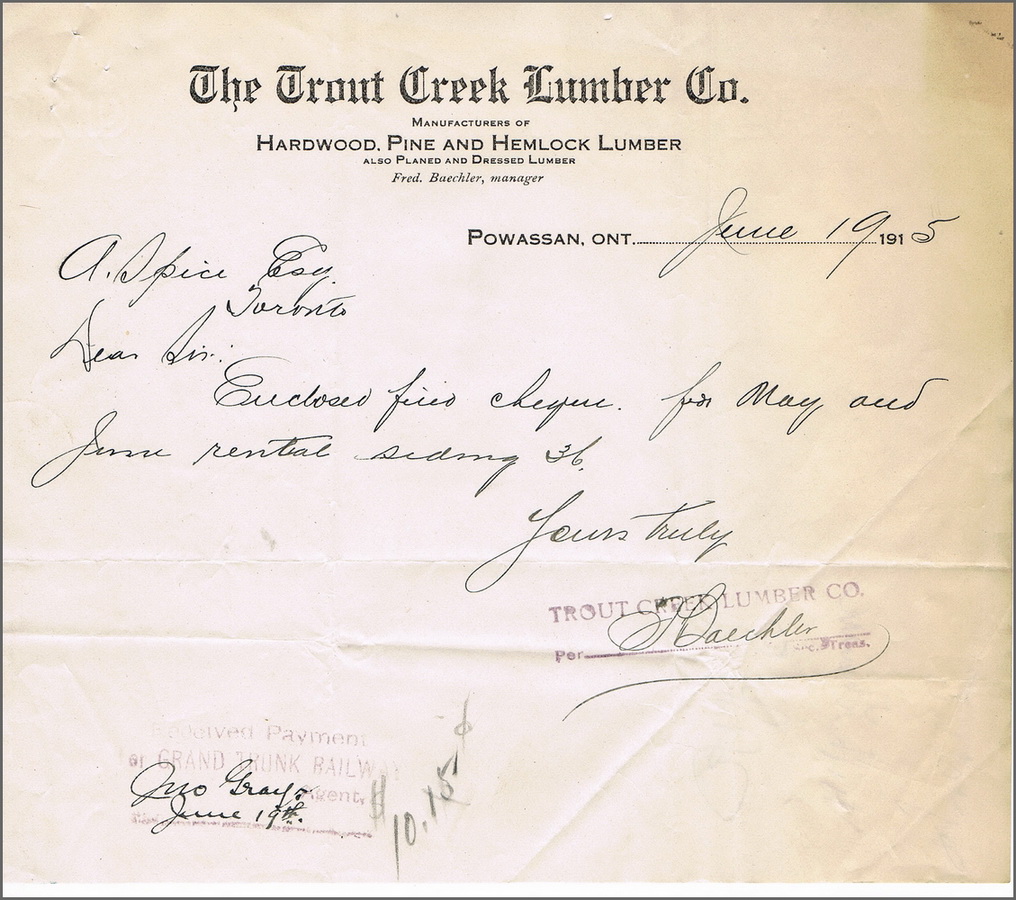 The Trout Creek Lumber Co.
Manufacturers of
Hardwood, Pine and Hemlock Lumber
also Planed and Dressed Lumber
Fred. Baechler, manager
Powassan, Ont. June 19 1915
A. Spice Esq.
Toronto
Dear Sir:
Enclosed find cheque. for May and
June rental siding 36.
Yours truly
TROUT CREEK LUMBER CO.
Per F Baechler Sec. Treas.
Received Payment
or GRAND TRUNK RAILWAY
Jno Grays Agent,
June 19th.
$10.15